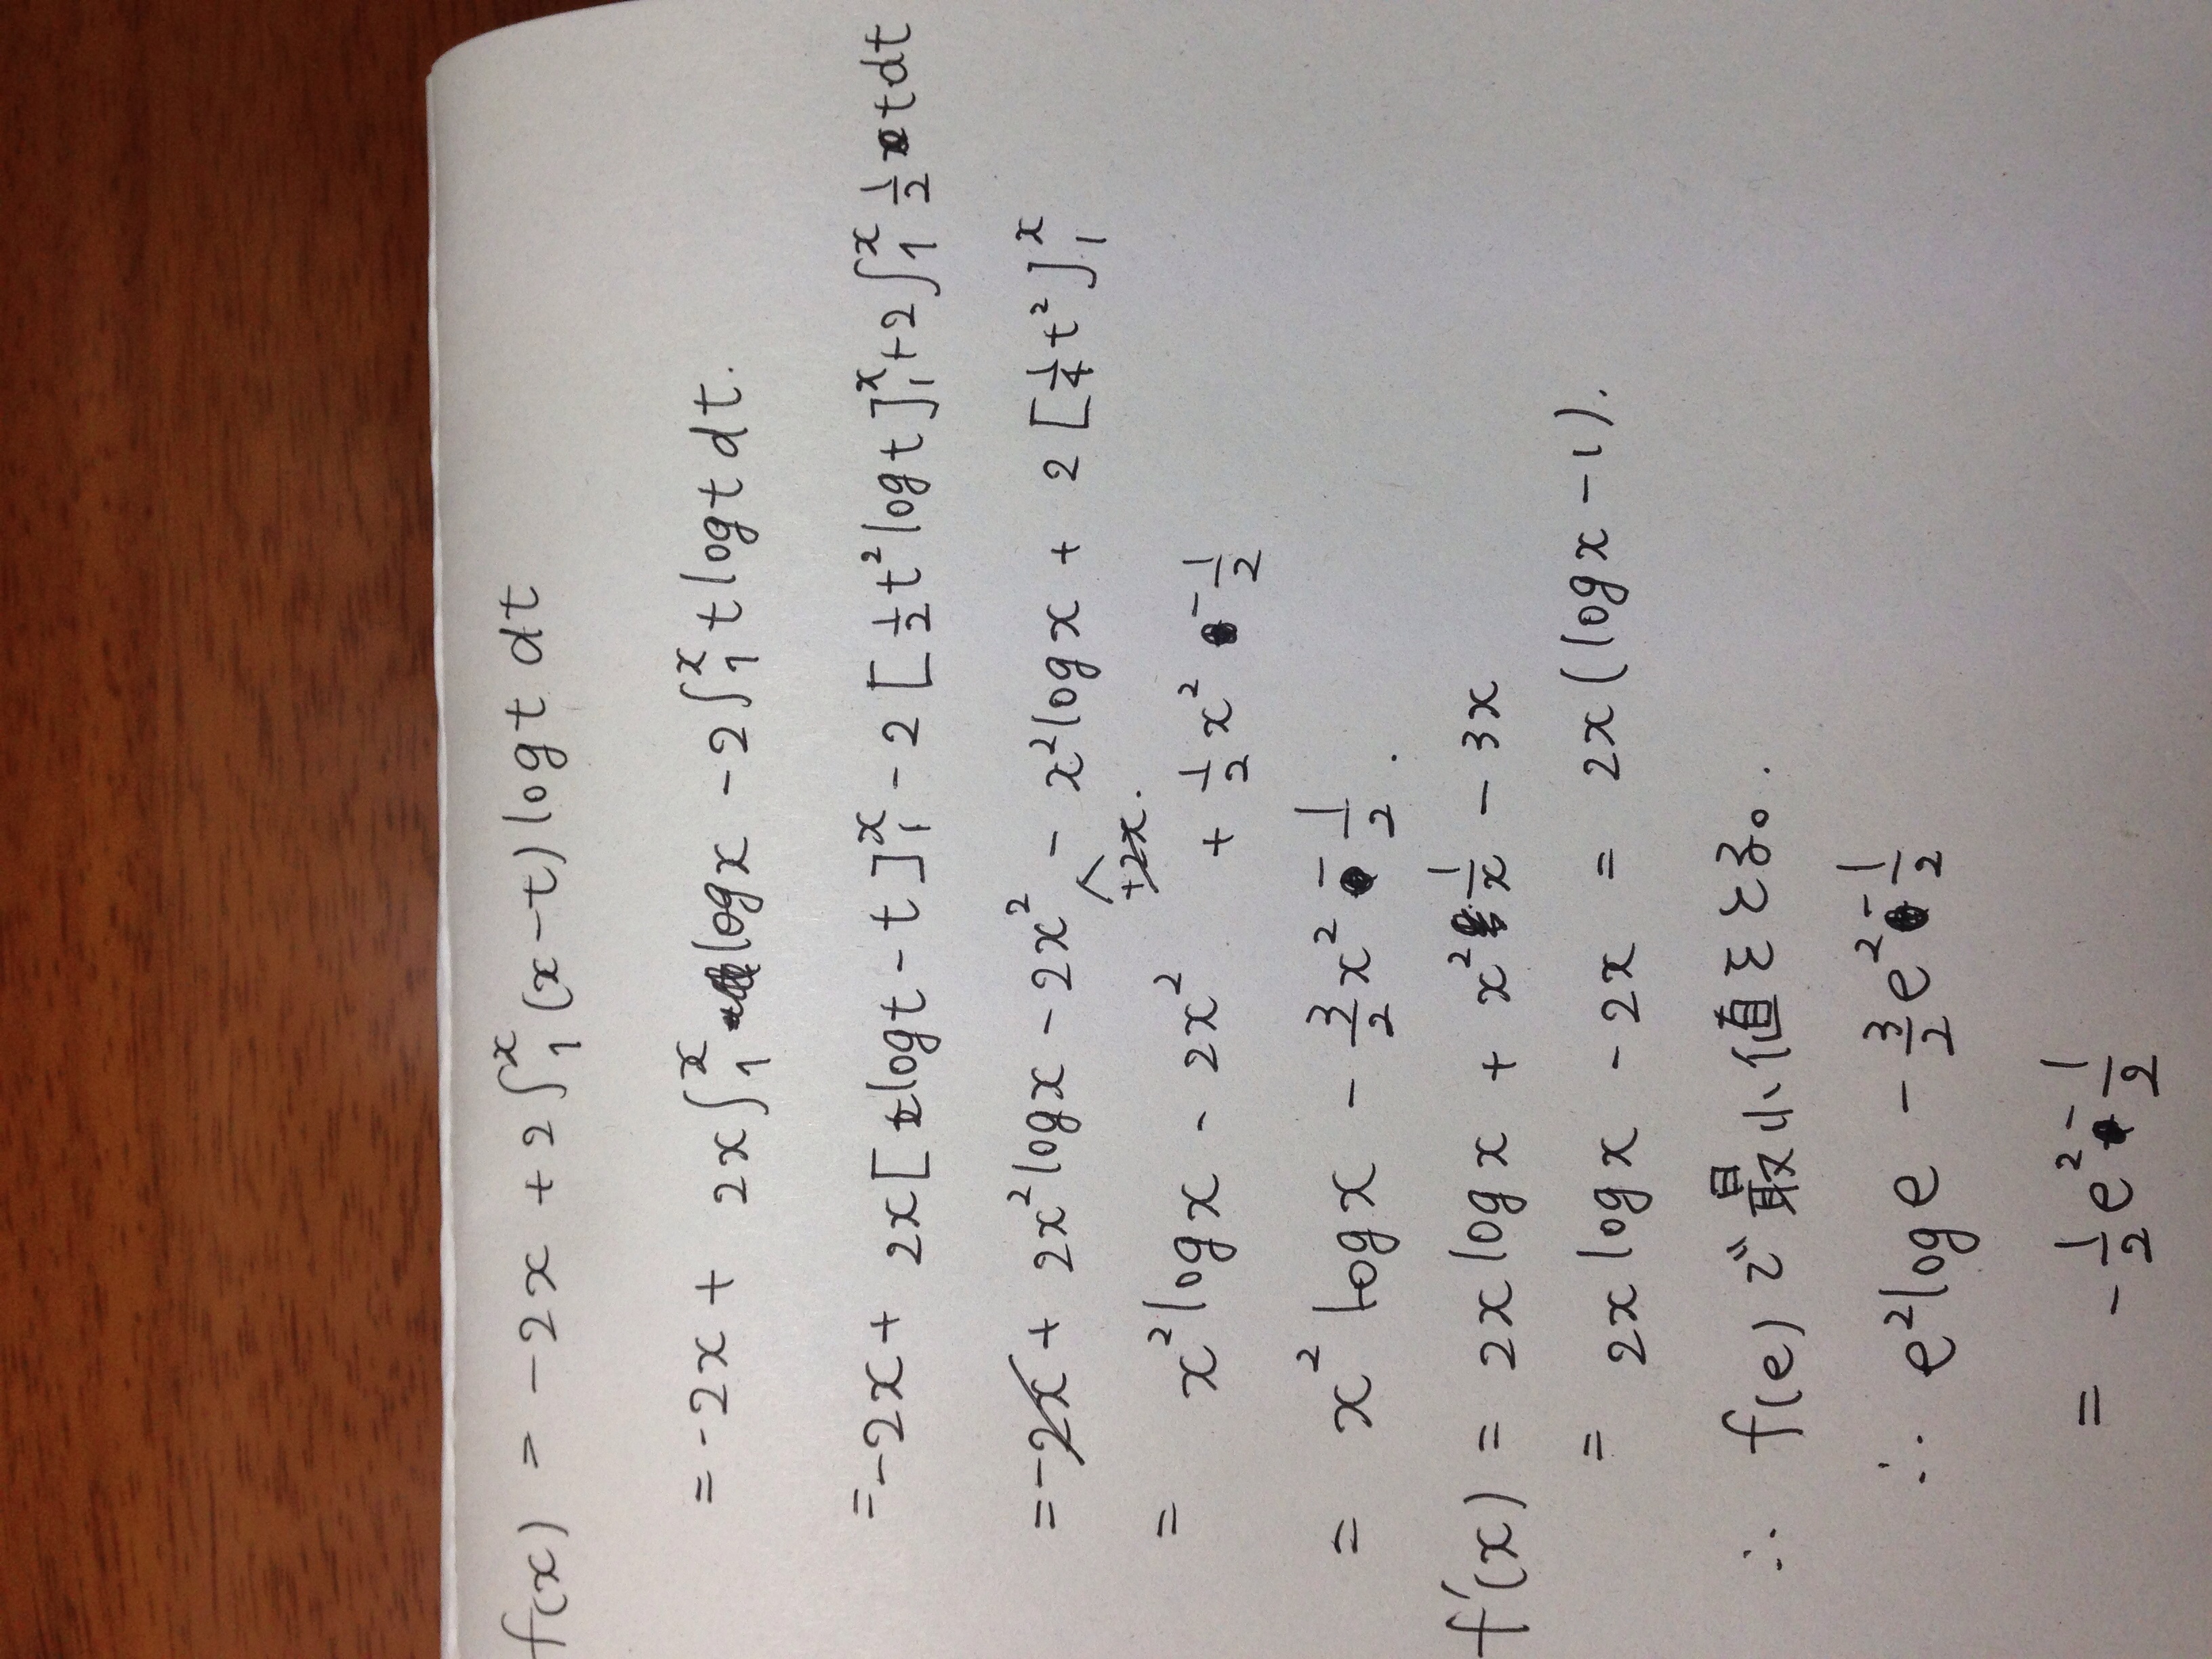 f(x) = -2x + 2∫₁ˣ (x-t) log t dt
= -2x + 2x∫₁ˣ log x - 2∫₁ˣ t log t dt.
= -2x + 2x[t log t - t]₁ˣ - 2[½t² log t]₁ˣ + 2∫₁ˣ ½ t dt
= -2x + 2x² log x - 2x² +2x. - x² log x + 2[¼t²]₁ˣ
= x² log x - 2x² + ½x² - ½
= x² log x - 3/2 x² - ½.
f'(x) = 2x log x + x² 1/x - 3x
= 2x log x - 2x = 2x(log x - 1).
∴ f(e) で 最小値をとる。
∴ e² log e - 3/2 e² - ½
= -½e² - ½